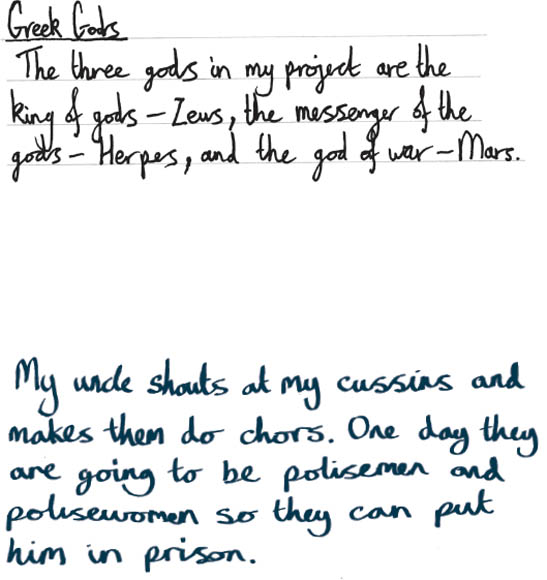 Greek Gods
The three gods in my project are the
king of gods – Zews, the messenger of the
gods – Herpes, and the god of war – Mars.
My uncle shouts at my cussins and
makes them do chors. One day they
are going to be polisemen and
polisewomen so they can put
him in prison.